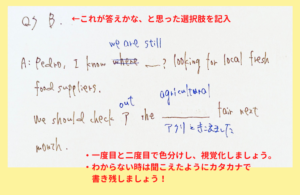 Q5 B.
←これが答えかな、と思った選択肢を記入
we are still
A: Pedro, I know where __? looking for local fresh
food suppliers.
out agricultural
We should check ? the ____ fair next
アグリときこえました
month.
・一度目と二度目で色分けし、視覚化しましょう。
・わからない時は聞こえたようにカタカナで
書き残しましょう！